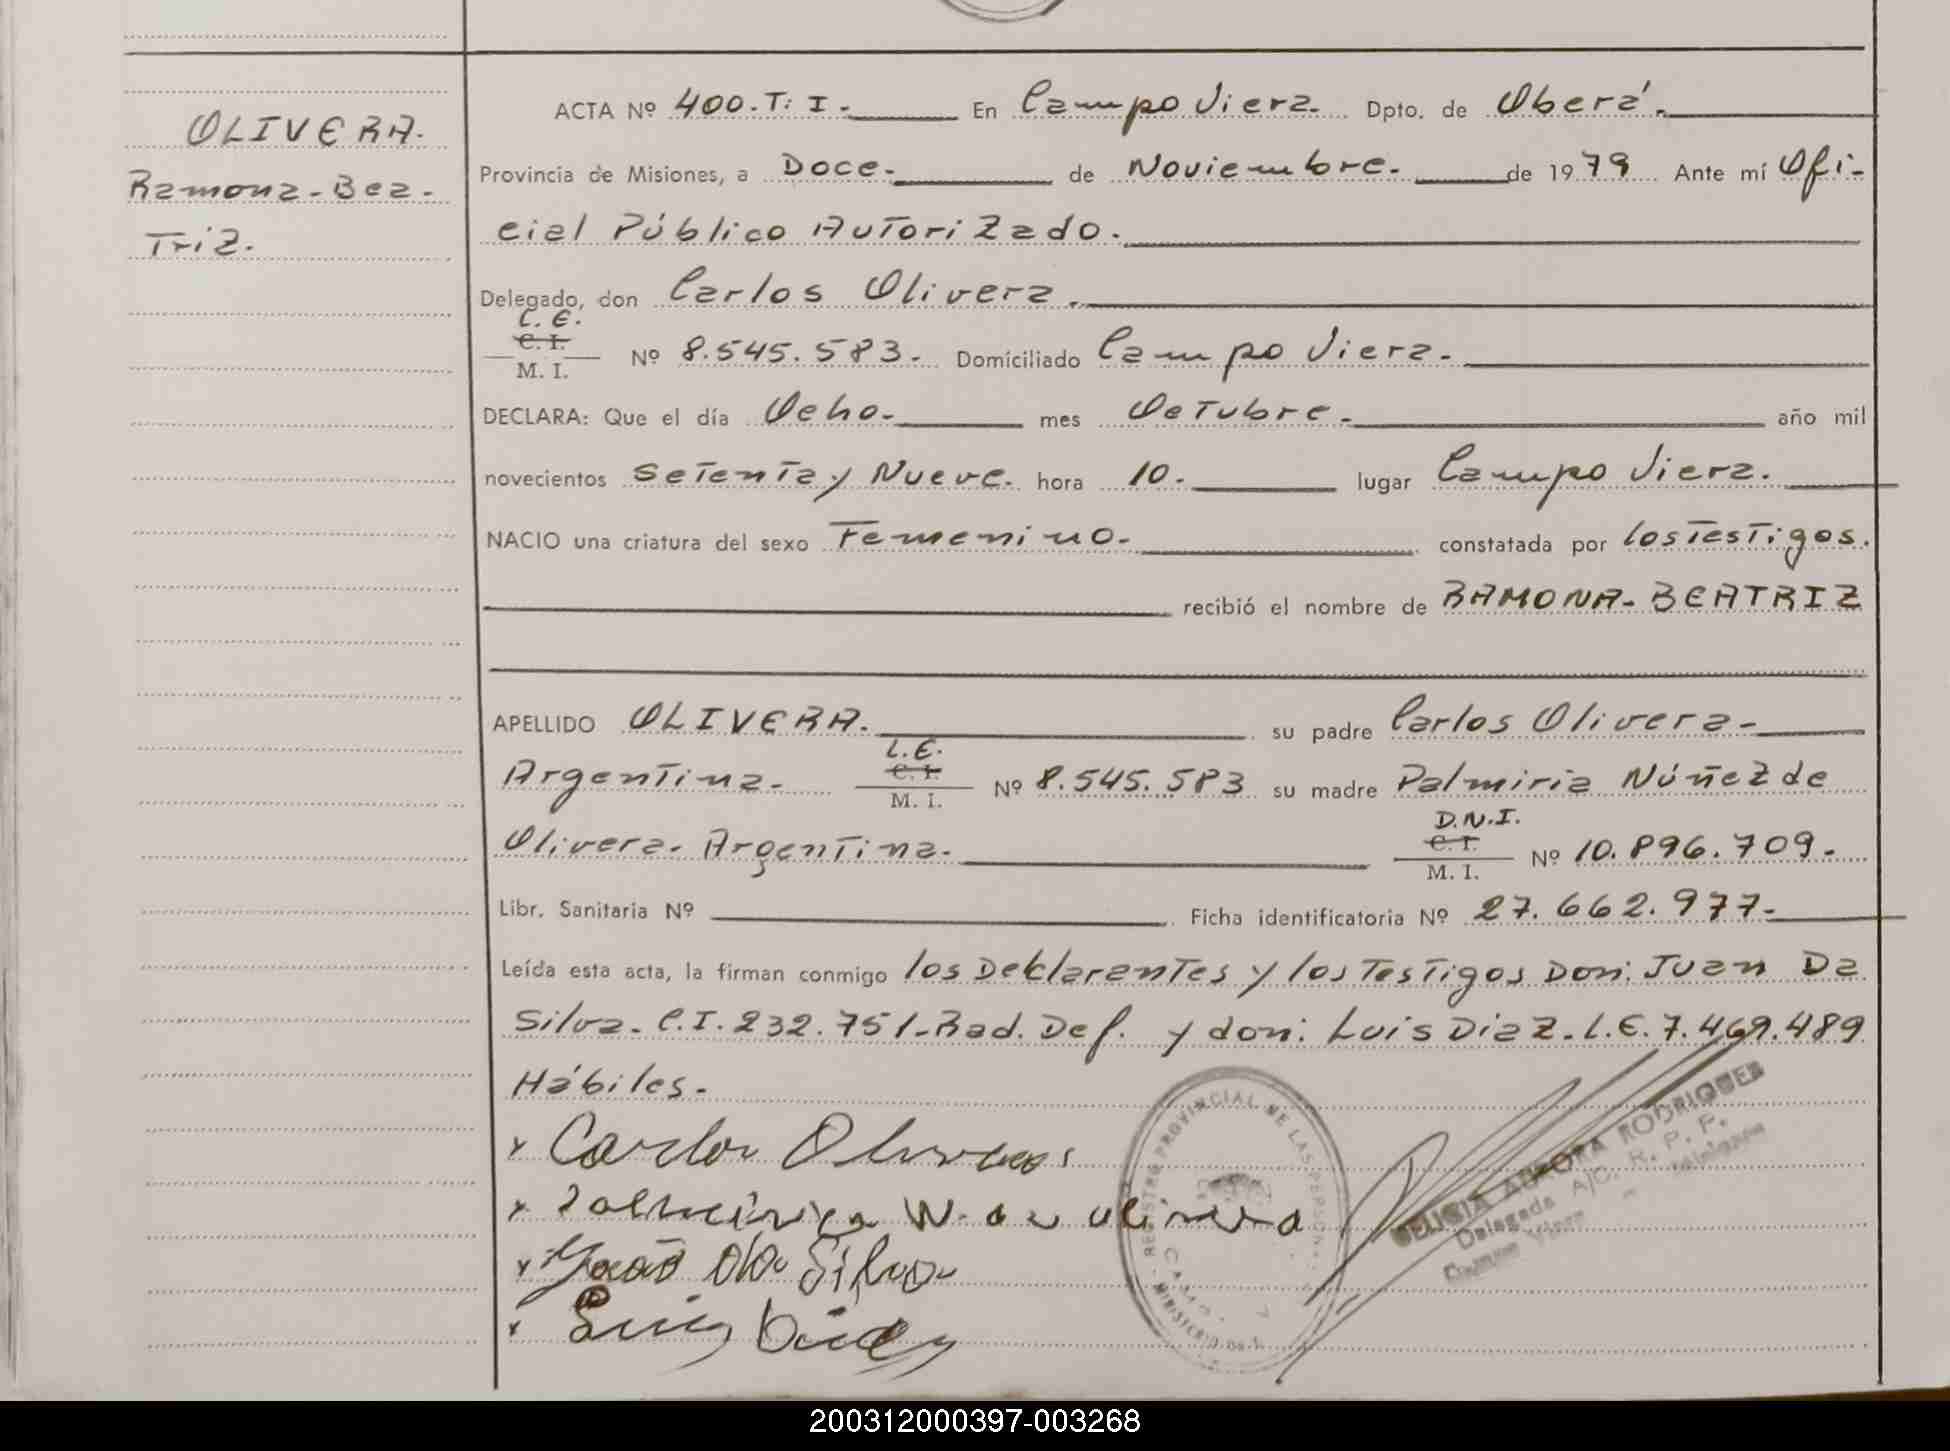 OLIVERA.
Ramona-Bea-
Triz.
ACTA Nº 400.T: I.- En Campo Viera. Dpto. de Oberá.
Provincia de Misiones, a Doce. de Noviembre. de 1979 Ante mí Ofi-
cial Público Autorizado.
Delegado, don Carlos Olivera.
L. E.
C. I.
M. I. Nº 8.545.583. Domiciliado Campo Viera.
DECLARA: Que el día Ocho. mes Octubre. año mil
novecientos Setenta y Nueve. hora 10. lugar Campo Viera.
NACIO una criatura del sexo Femenino. constatada por los Testigos.
recibió el nombre de RAMONA-BEATRIZ
APELLIDO OLIVERA. su padre Carlos Olivera-
L.E.
C. I.
Argentina. M. I. Nº 8.545.583 su madre Palmiria Núñez de
D.N.I.
C. I.
Olivera. Argentina. M. I. Nº 10.896.709.
Libr. Sanitaria Nº Ficha identificatoria Nº 27.662.977.
Leída esta acta, la firman conmigo los Declarantes y los Testigos Don: Juan Da
Silva. C.I. 232.751-Rad. Def. y don: Luis Diaz. L.E. 7.469.489
Hábiles.
x Carlos Olivera
x Palmiria N. de Olivera
x João da Silva
x Luis Diaz
REGISTRO PROVINCIAL DE LAS PERSONAS
MINISTERIO DE
AURORA RODRIGUEZ
Delegada A/C. R. P. P.
Campo Viera
200312000397-003268